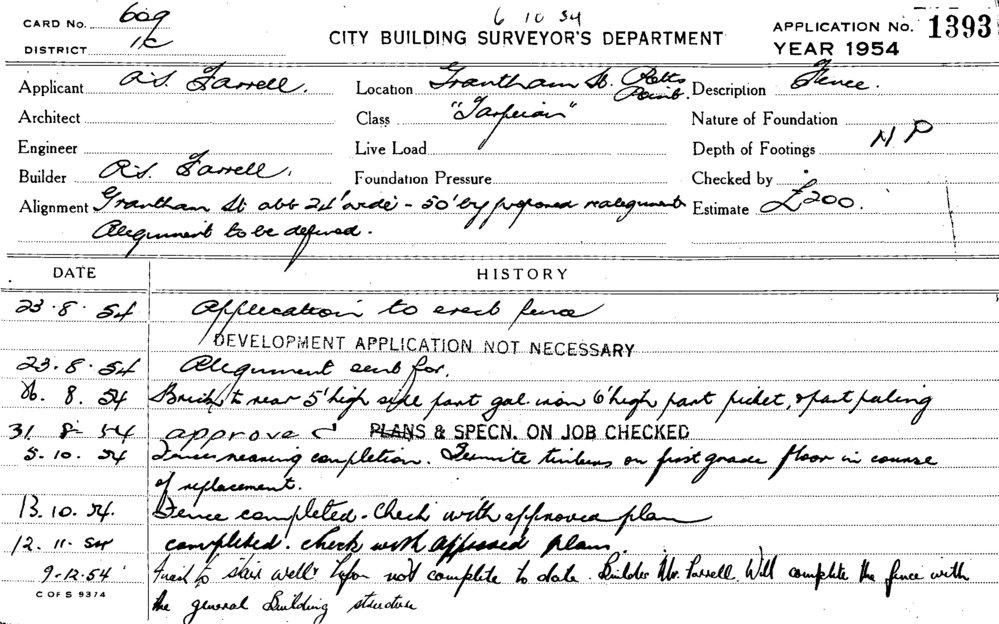 6 10 54
CARD No. 609
DISTRICT 1c
CITY BUILDING SURVEYOR'S DEPARTMENT
APPLICATION No. 1393
YEAR 1954
Applicant R.S. Farrell. Location Grantham St. Potts Point. Description Fence.
Architect Class "Tarpeian" Nature of Foundation
Engineer Live Load Depth of Footings NP
Builder R.S. Farrell. Foundation Pressure Checked by
Alignment Grantham St abt 24' wide - 50' by proposed realignment Estimate £200.
Alignment to be defined.
DATE HISTORY
23.8.54 Application to erect fence
DEVELOPMENT APPLICATION NOT NECESSARY
23.8.54 Alignment sent for.
26.8.54 Brick to rear 5' high side part gal. iron 6' high part picket, & part paling
31 8- 54 approved PLANS & SPECN. ON JOB CHECKED
5.10.54 Fence nearing completion. Termite timbers on first grade floor in course
of replacement.
13.10.54. Fence completed. Check with approved plan
12.11.54 completed. check with approved plans.
9.12.54 to stair well not complete to date. Builder Mr. Farrell. Will complete the fence with
the general Building structure
C OF S 9374